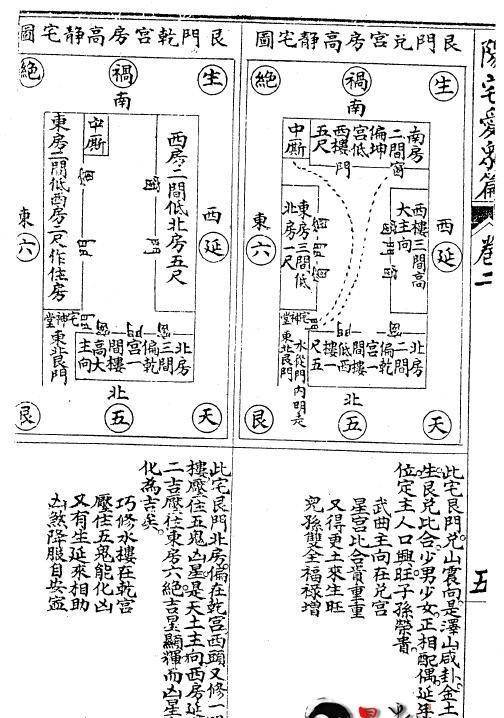 陽宅愛眾篇
卷二
五
艮門兌宮房高静宅圖
生
禍
絕
南
南房
二間窗
偏坤
宮低
西樓
五尺
門
中廁
西
延
西樓三間高
大主向
東
六
東房三間低
北房一尺
宅神堂
東北艮門
水從門內明走
北房
二間
偏乾
宮一
間樓
低西
樓一
尺
北
天
五
艮
此宅艮門兌山震向是澤山咸卦金土相
生艮兌比合少男少女正相配偶延年
位定主人口興旺子孫榮貴
武曲主向在兌宮
星宮比合貴重重
又得更土來生旺
兒孫雙全福祿增
艮門乾宮房高静宅圖
生
禍
絕
南
中廁
西房二間低北房五尺
東房二間低西房二尺作住房
西
延
東
六
宅神堂
東北艮門
北房
三間
偏乾
宮一
間樓
高大
主向
北
天
五
艮
此宅艮門北房偏在乾宮西頭又修一間
樓壓住五鬼凶星是天土主向西房延年
二吉壓住東房六絕吉星顯輝而凶星
化為吉矣
巧修水樓在乾宮
壓住五鬼能化凶
又有生延來相助
凶煞降服自安寧